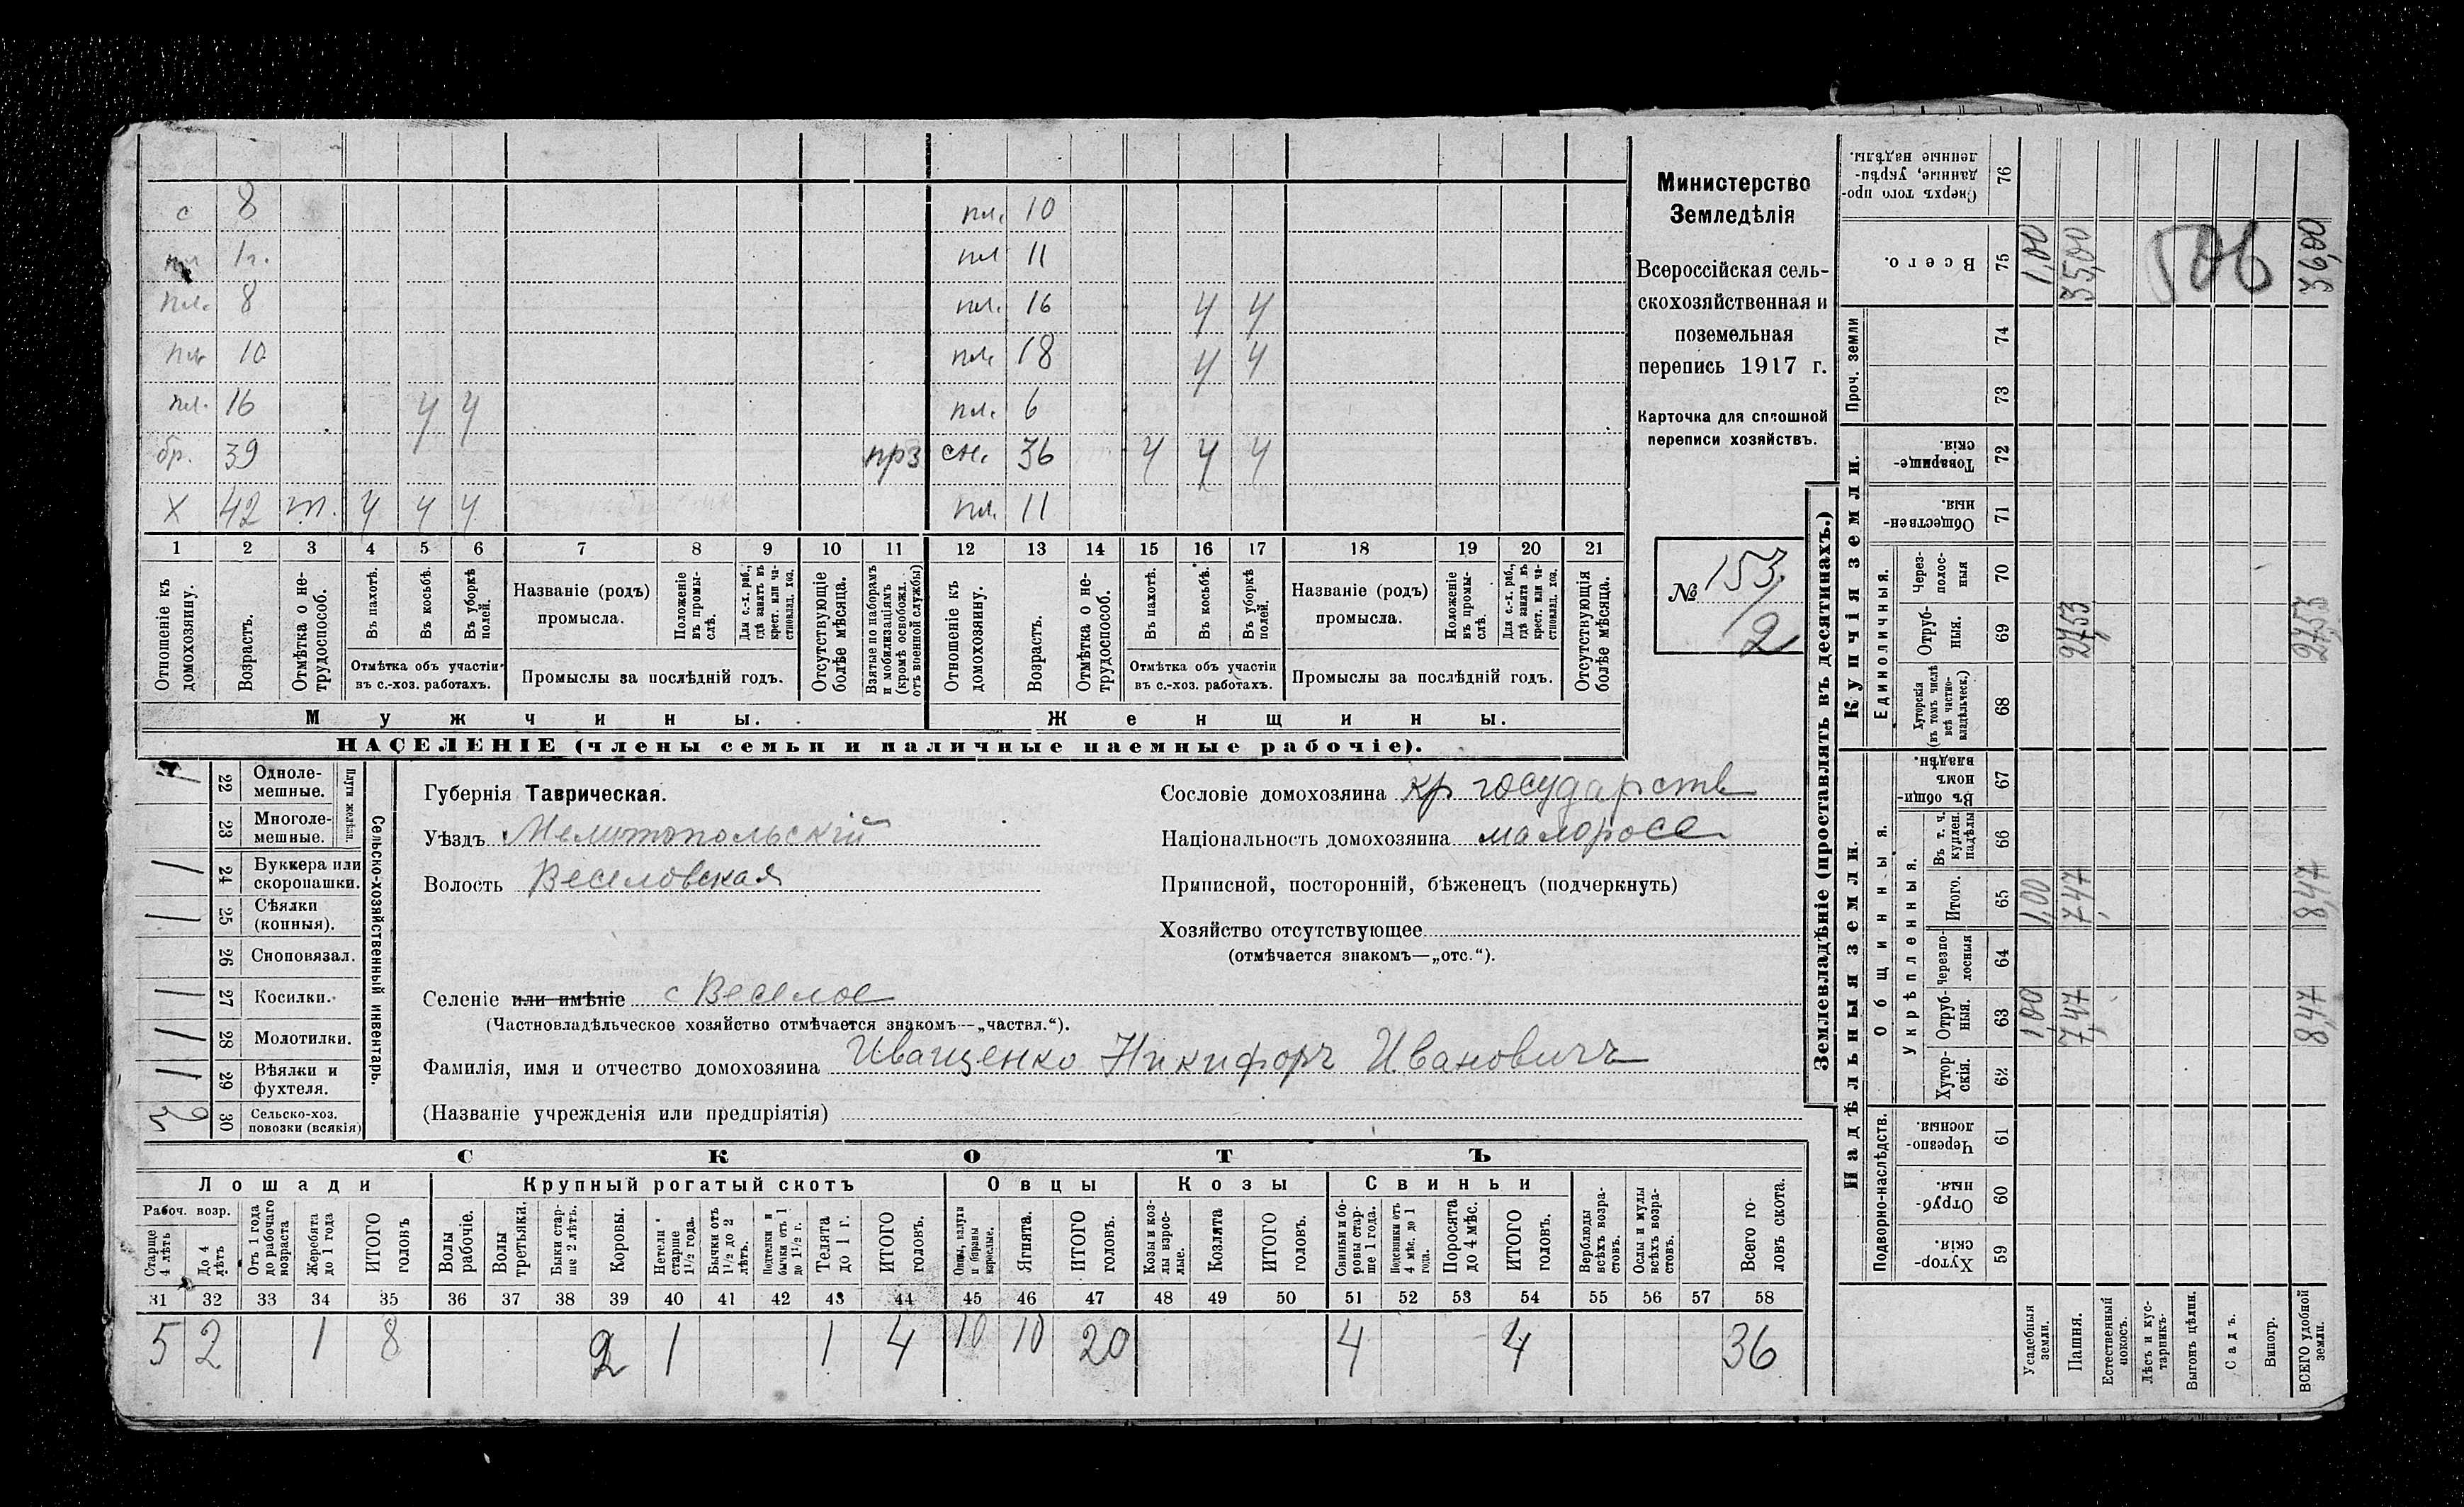 с 8 пл. 10
1г. пл 11
пл. 8 пл. 16 У У
пл 10 пл. 18 У У
пл. 16 У У пл. 6
бр. 39 прз сн. 36 У У У
Х 42 т. У У У пл. 11
1 2 3 4 5 6 7 8 9 10 11 12 13 14 15 16 17 18 19 20 21
Отношеніе къ домохозяину.
Возрастъ.
Отмѣтка о не-трудоспособ.
Въ пахотѣ.
Въ косьбѣ.
Въ уборкѣ полей.
Отмѣтка объ участіи
въ с.-хоз. работахъ.
Названіе (родъ)
промысла.
Положеніе въ промы-слѣ.
Для с.-х. раб., гдѣ занятъ въ крест. или ча-стновлад. хоз.
Промыслы за послѣдній годъ.
Отсутствующіе болѣе мѣсяца.
Взятые по наборамъ и мобилизаціямъ (кромѣ освобожд. отъ военной службы)
Отношеніе къ домохозяину.
Возрастъ.
Отмѣтка о не-трудоспособ.
Въ пахотѣ.
Въ косьбѣ.
Въ уборкѣ полей.
Отмѣтка объ участіи
въ с.-хоз. работахъ.
Названіе (родъ)
промысла.
Положеніе въ промы-слѣ.
Для с.-х. раб., гдѣ занята въ крест. или ча-стновлад. хоз.
Промыслы за послѣдній годъ.
Отсутствующія болѣе мѣсяца.
Мужчины.
Женщины.
НАСЕЛЕНІЕ (члены семьи и наличные наемные рабочіе).
Министерство
Земледѣлія
Всероссійская сель-
скохозяйственная и
поземельная
перепись 1917 г.
Карточка для сплошной
переписи хозяйствъ.
№ 153/2
Сельско-хозяйственный инвентарь.
Плуги желѣзн.
1 22 Одноле-мешные.
23 Многоле-мешные.
1 24 Буккера или скоропашки.
1 25 Сѣялки (конныя).
26 Сноповязал.
1 27 Косилки.
1 28 Молотилки.
1 29 Вѣялки и фухтеля.
30 Сельско-хоз. повозки (всякія)
Губернія Таврическая.
Уѣздъ Мелитопольскій
Волость Веселовская
Селеніе или имѣніе с Веселое
(Частновладѣльческое хозяйство отмѣчается знакомъ—„частвл.“).
Фамилія, имя и отчество домохозяина Иващенко Никифоръ Ивановичъ
(Названіе учрежденія или предпріятія)
Сословіе домохозяина кр государств
Національность домохозяина малоросс
Приписной, посторонній, бѣженецъ (подчеркнуть)
Хозяйство отсутствующее
(отмѣчается знакомъ—„отс.“).
СКОТЪ
Лошади Крупный рогатый скотъ Овцы Козы Свиньи
Рабоч. возр.
Старше 4 лѣтъ
До 4 лѣтъ
Отъ 1 года до рабочаго возраста
Жеребята до 1 года
ИТОГО головъ
Волы рабочіе.
Волы третьяки.
Быки стар-ше 2 лѣтъ.
Коровы.
Нетели старше 1½ года.
Бычки отъ 1½ до 2 лѣтъ.
Подтелки и бычки отъ 1 до 1½ г.
Телята до 1 г.
ИТОГО головъ.
Овцы, валухи и бараны взрослые.
Ягнята.
ИТОГО головъ.
Козы и коз-лы взрос-лые.
Козлята
ИТОГО головъ.
Свиньи и бо-ровы стар-ше 1 года.
Подсвинки отъ 4 мѣс. до 1 года.
Поросята до 4 мѣс.
ИТОГО головъ.
Верблюды всѣхъ возра-стовъ.
Ослы и мулы всѣхъ возра-стовъ.
Всего го-ловъ скота.
31 32 33 34 35 36 37 38 39 40 41 42 43 44 45 46 47 48 49 50 51 52 53 54 55 56 57 58
5 2 1 8 2 1 1 4 10 10 20 4 4 36
Землевладѣніе (проставлять въ десятинахъ.)
Надѣльныя земли.
Купчія земли.
Проч. земли
Подворно-наслѣдств.
Общинныя.
Укрѣпленныя.
Единоличныя.
Сверхъ того про-данные, укрѣп-ленные надѣлы. 76
Всего. 75 1,00 35,00 506 36,00
74
73
Товарище-скія. 72
Обществен-ныя 71
Через-полос-ныя 70
Отруб-ныя. 69 27,53 27,53
Хуторскія (въ томъ числѣ всѣ частно-владѣльческ.) 68
Въ общи-номъ владѣн. 67
Въ т. ч. куплен. надѣлы 66
Итого. 65 1,00 7,47 8,47
Черезпо-лосныя 64
Отруб-ныя. 63 1,00 7,47 8,47
Хутор-скія. 62
Черезпо-лосныя. 61
Отруб-ныя. 60
Хутор-скія. 59
Усадебныя земли.
Пашня.
Естественный покосъ.
Лѣсъ и кус-тарникъ.
Выгонъ цѣлин.
Садъ.
Виногр.
ВСЕГО удобной земли.